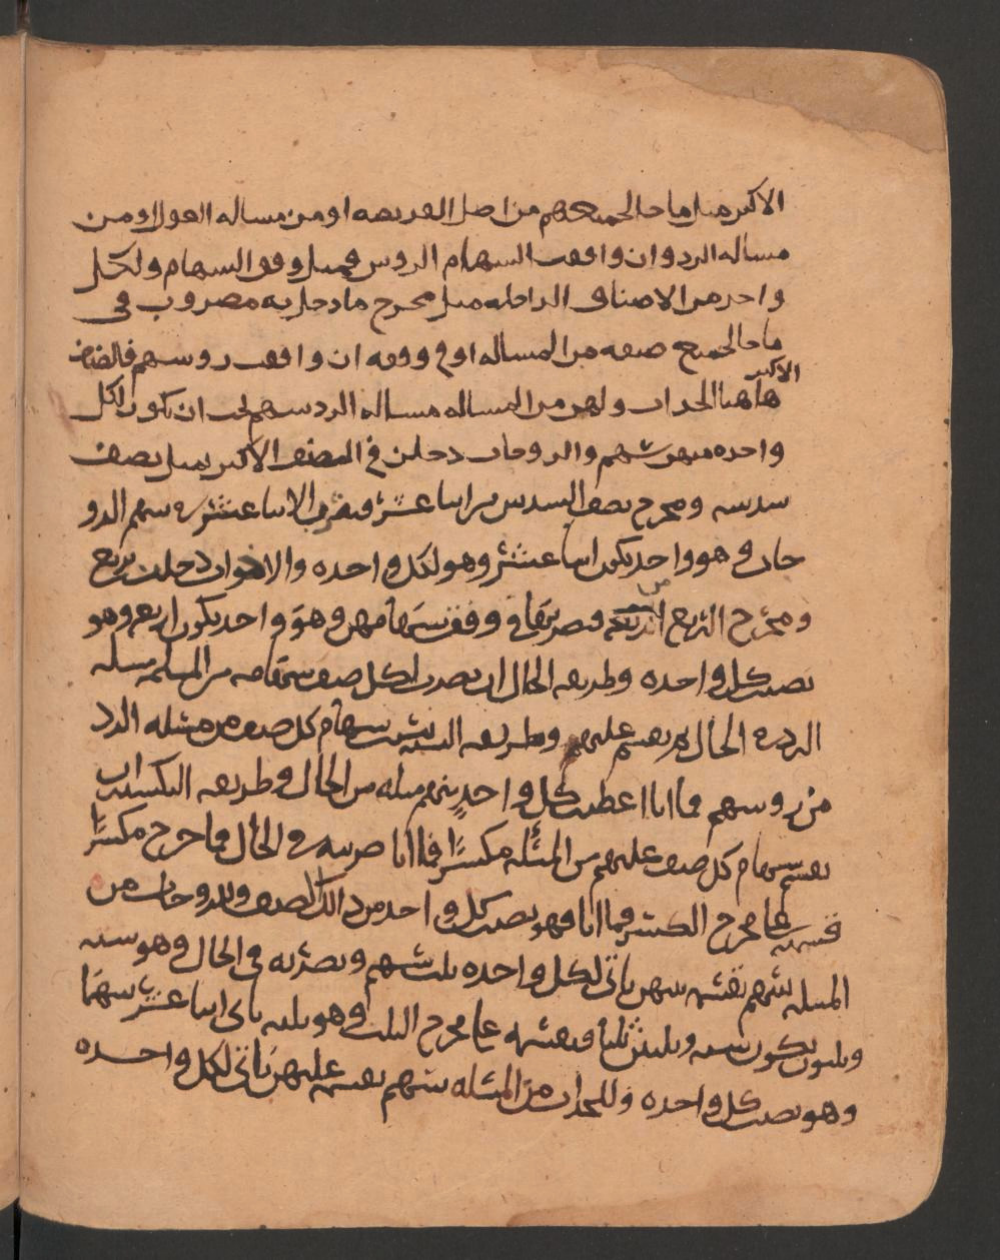 الاكبر مثل ما حا لجميعهم من اصل الفريضه او من مساله العول او من
مساله الرد وان وافقت السهام الروس فمثل وفق السهام ولكل
واحد من الاصناف الداخله مثل مخرج ما دخل به مضروب في
ما حا لجميع صنفه من المساله او في وفقه ان وافقت روسهم فالصنف
الاكبر
هاهنا الجدات ولهن من المساله مساله الرد سهم يجب ان يكون لكل
واحده منهن سهم والزوجات دخلن في الصنف الاكبر بمثل نصف
سدسه ومخرج نصف السدس من اثنا عشر فتضرب الاثنا عشر في سهم الزو
جات وهو واحد يكون اثنا عشر وهو لكل واحده والاخوات دخلن بربع
ومخرج الربع من اربعه فتضربها في وفق سهامهن وهو واحد يكون اربعه وهو
نصيب كل واحده وطريقه الحال ان تضرب لكل صنف سهامه من المساله مساله
الرد في الحال ثم يقسم عليهم وطريقه النسبه تنسب سهام كل صنف من مسله الرد
من روسهم فما اتا اعطيت كل واحدٍ منهم مثله من الحال وطريقه التكسير ان
تقسم سهام كل صنف عليهم من المسله مكسرًا فما اتا ضربته في الحال فما خرج مكسرًا
قسمته على مخرج الكسر فما اتا فهو نصيب كل واحد من ذلك الصنف وللزوجات من
المسله سهم تقسمه بينهن ياتى لكل واحده ثلث سهم وتضربه في الحال وهو سته
وثلثون يكون سته وثلثين ثلثا فتقسمه على مخرج الثلث وهو ثلثه ياتى اثنا عشر سهمًا
وهو نصيب كل واحده وللجدات من المسله سهم تقسمه عليهن ياتى لكل واحده